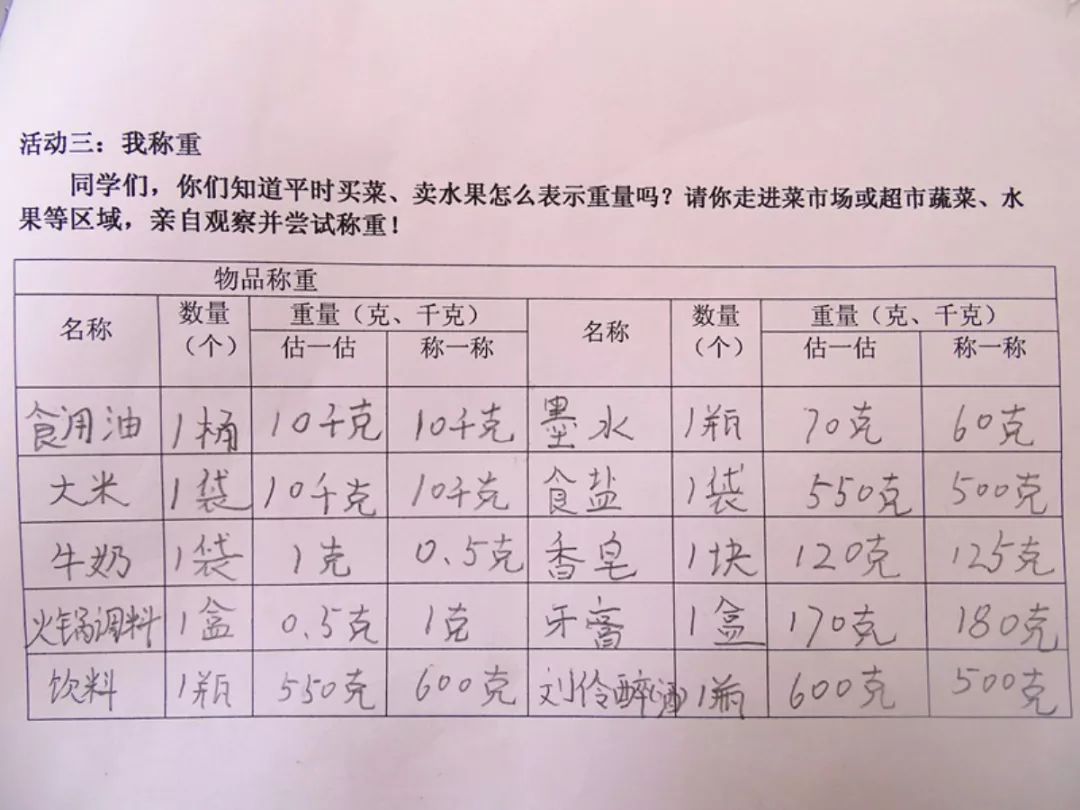 活动三：我称重
同学们，你们知道平时买菜、卖水果怎么表示重量吗？请你走进菜市场或超市蔬菜、水
果等区域，亲自观察并尝试称重！
物品称重
名称 数量（个） 重量（克、千克） 名称 数量（个） 重量（克、千克）
估一估 称一称 估一估 称一称
食用油 1桶 10千克 10千克 墨水 1瓶 70克 60克
大米 1袋 10千克 10千克 食盐 1袋 550克 500克
牛奶 1袋 1克 0.5克 香皂 1块 120克 125克
火锅调料 1盒 0.5克 1克 牙膏 1盒 170克 180克
饮料 1瓶 550克 600克 刘伶醉(酒) 1瓶 600克 500克